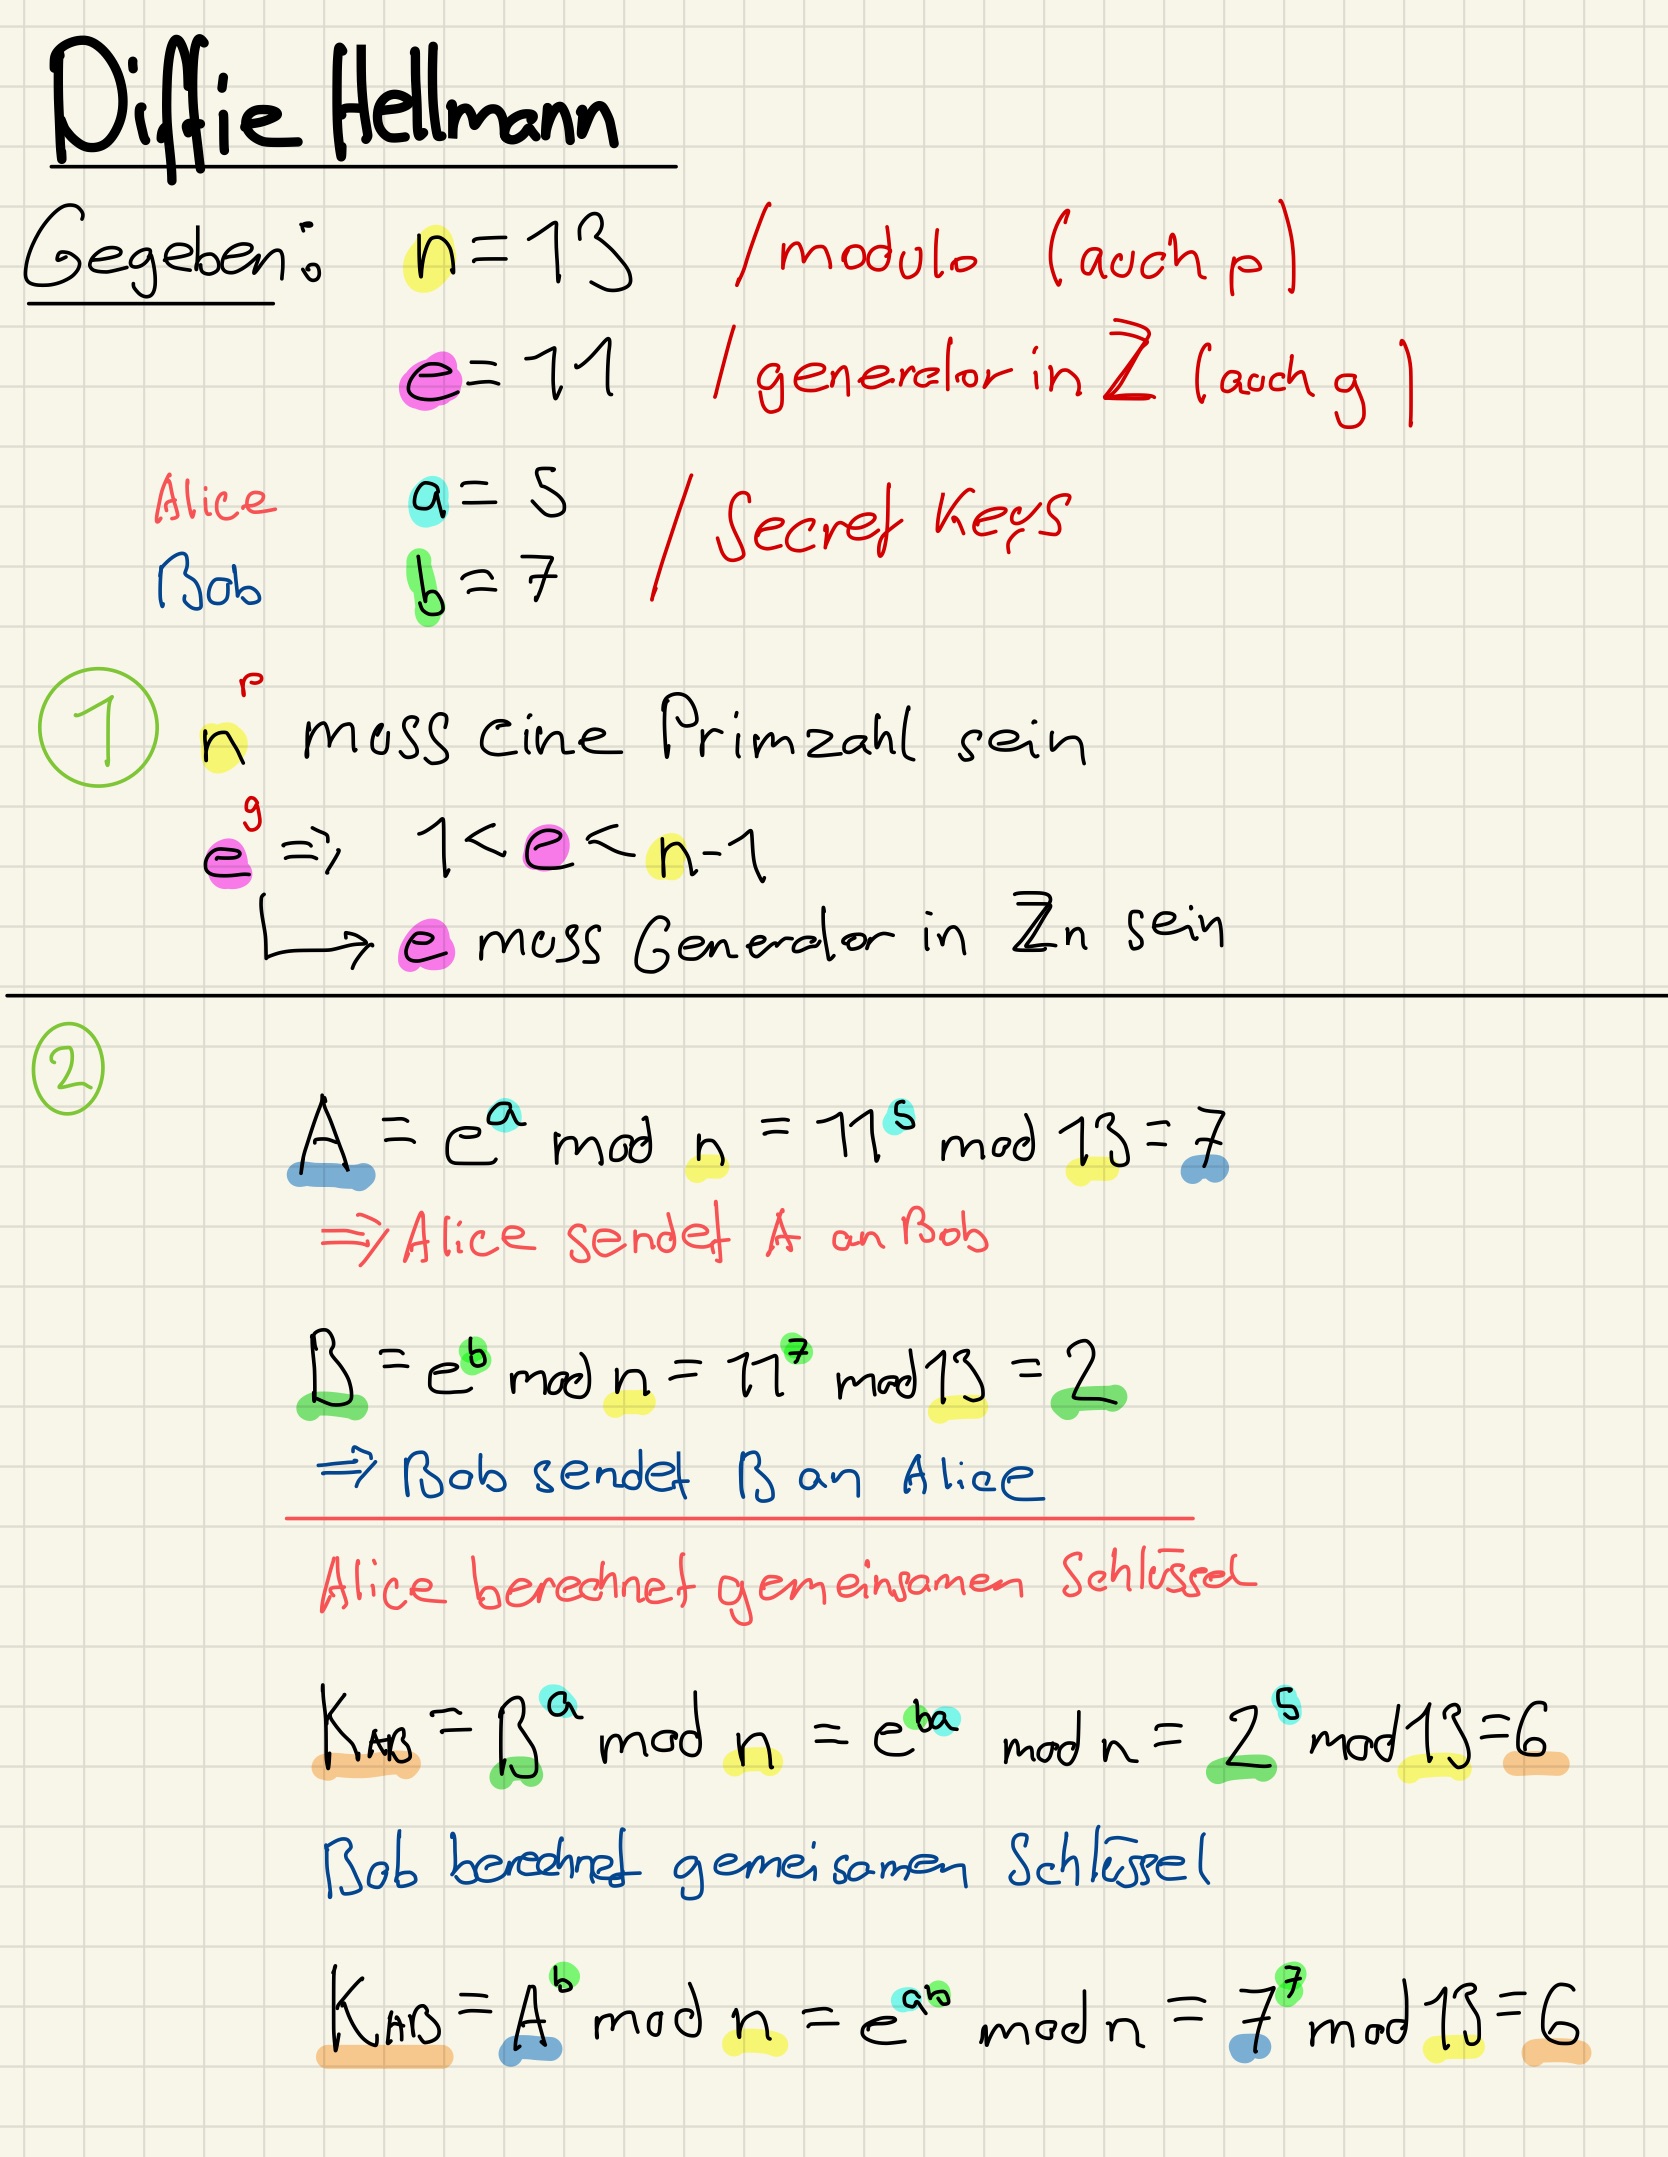 Diffie Hellmann
Gegeben: n = 13 / modulo (auch p)
e = 11 / generator in ℤ (auch g)
Alice a = 5 / Secret Keys
Bob b = 7
p
① n muss eine Primzahl sein
g
e ⇒ 1 < e < n-1
↳ e muss Generator in ℤn sein
②
A = e^a mod n = 11^5 mod 13 = 7
⇒ Alice sendet A an Bob
B = e^b mod n = 11^7 mod 13 = 2
⇒ Bob sendet B an Alice
Alice berechnet gemeinsamen Schlüssel
K_AB = B^a mod n = e^ba mod n = 2^5 mod 13 = 6
Bob berechnet gemeisamen Schlüssel
K_AB = A^b mod n = e^ab mod n = 7^7 mod 13 = 6